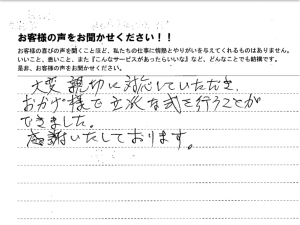 お客様の声をお聞かせください！！
お客様の喜びの声を聞くことほど、私たちの仕事に情熱とやりがいを与えてくれるものはありません。
いいこと、悪いこと、また『こんなサービスがあったらいいな』など、どんなことでも結構です。
是非、お客様の声をお聞かせください。
大変親切に対応していただき、
おかげ様で立派な式を行うことが
できました。
感謝いたしております。